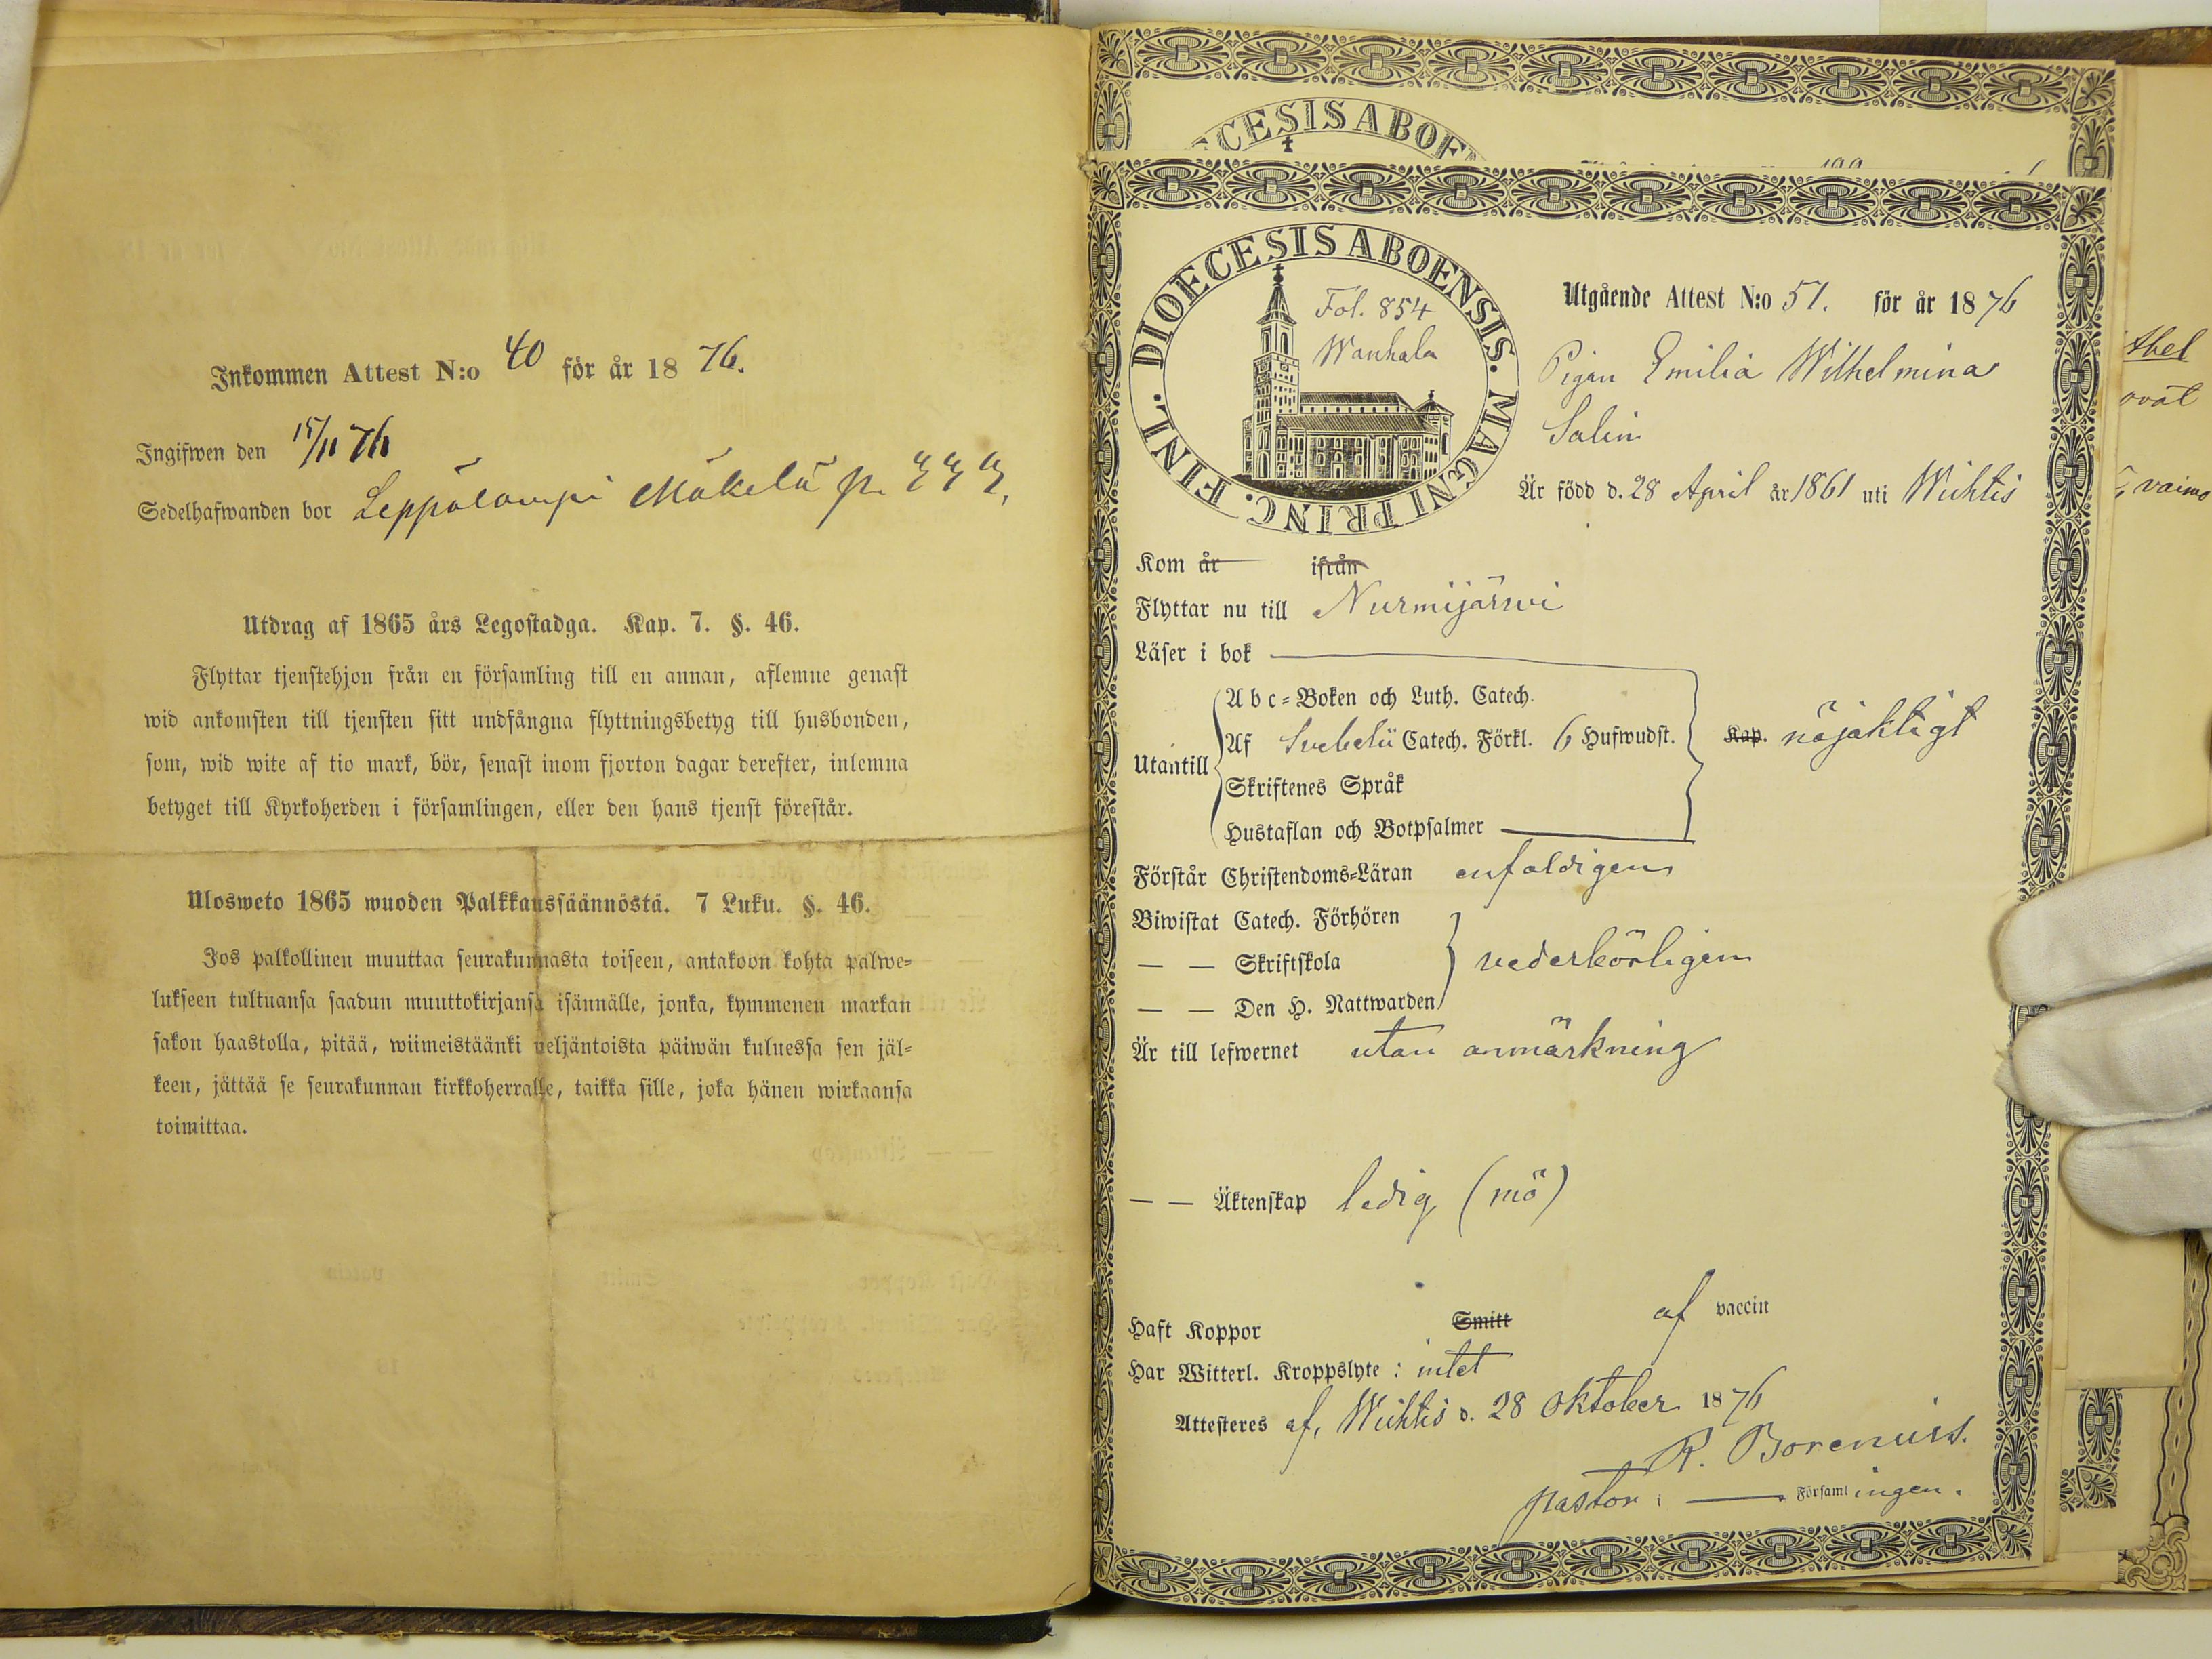 Inkommen Attest N:o 40 för år 1876.
Ingifwen den 15/11 76
Sedelhafwanden bor Leppälampi Mäkelä p.
Utdrag af 1865 års Legostadga. Kap. 7. §. 46.
Flyttar tjenstehjon från en församling till en annan, aflemne genast
wid ankomsten till tjensten sitt undfångna flyttningsbetyg till husbonden,
som, wid wite af tio mark, bör, senast inom fjorton dagar derefter, inlemna
betyget till Kyrkoherden i församlingen, eller den hans tjenst förestår.
Ulosweto 1865 wuoden Palkkaussäännöstä. 7 Luku. §. 46.
Jos palkollinen muuttaa seurakunnasta toiseen, antakoon kohta palwe-
lukseen tultuansa saadun muuttokirjansa isännälle, jonka, kymmenen markan
sakon haastolla, pitää, wiimeistäänki neljäntoista päiwän kuluessa sen jäl-
keen, jättää se seurakunnan kirkkoherralle, taikka sille, joka hänen wirkaansa
toimittaa.
CESIS ABOE
DIOECESIS ABOENSIS. MAGNI PRINC. FINL.
Fol. 854
Wanhala
Utgående Attest N:o 51. för år 1876
Pigan Emilia Wilhelmina
Salin
Är född d. 28 April år 1861 uti Wichtis
Kom år ifrån
Flyttar nu till Nurmijärwi
Läser i bok
Utantill
Abc-Boken och Luth. Catech.
Af Svebelii Catech. Förkl. 6 Hufwudst.
Skriftenes Språk
Hustaflan och Botpsalmer
Kap. nöjaktigt
Förstår Christendoms-Läran enfaldigen
Biwistat Catech. Förhören
— — Skriftskola
— — Den H. Nattwarden
vederbörligen
Är till lefwernet utan anmärkning
— — Äktenskap ledig (mö)
Haft Koppor Smitt af vaccin
Har Witterl. Kroppslyte: intet
Attesteres af, Wichtis d. 28 Oktober 1876
R. Borenius.
pastor i — Församlingen.
thel
ovat
vaimo